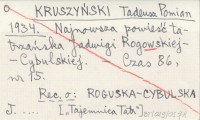 KRUSZYŃSKI Tadeusz Pomian
1934. Najnowsza powieść ta-
trzańska Jadwigi Rogowskiej-
-Cybulskiej. - Czas 86,
nr 15.
Rec. o: ROGUSKA-CYBULSKA
J. .... ["Tajemnica Tatr"]